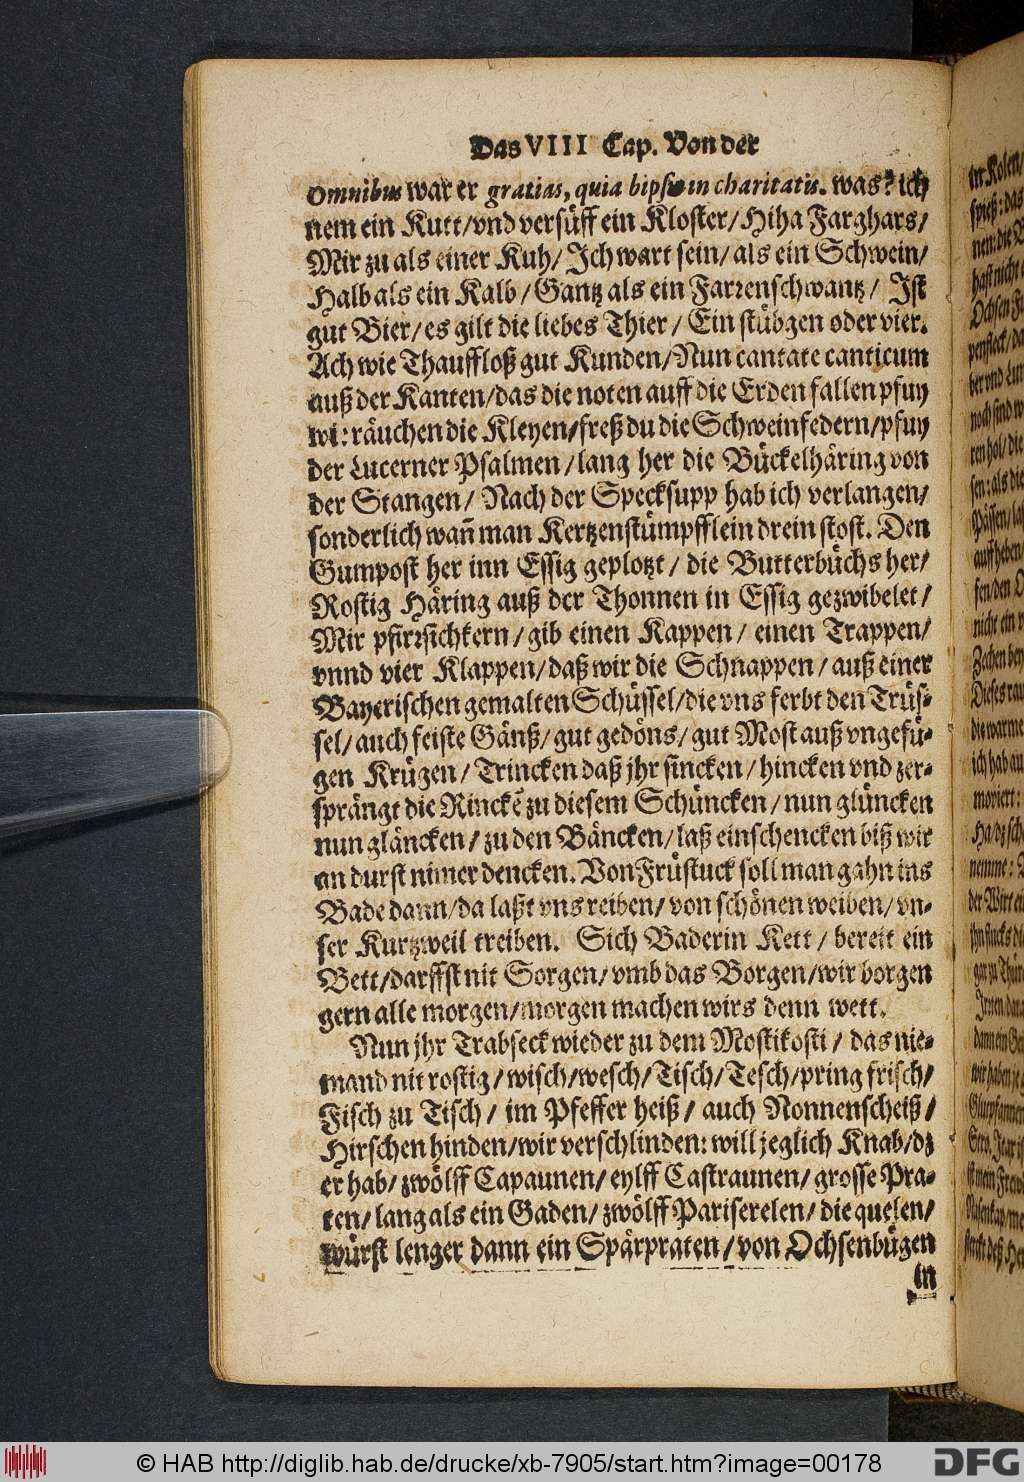 Das VIII Cap. Von der
Omnibus war er gratias, quia bipsum in charitatis. was? ich
nem ein Kutt/vnd versüff ein Kloster/Hiha Farghars/
Mir zu als einer Kuh/Ich wart sein/als ein Schwein/
Halb als ein Kalb/Gantz als ein Farrenschwantz/ Ist
gut Bier/es gilt die liebes Thier/Ein stübgen oder vier.
Ach wie Thauffloß gut Kunden/Nun cantate canticum
auß der Kanten/das die noten auff die Erden fallen pfuy
wi: räuchen die Kleyen/freß du die Schweinfedern/pfuy
der Lucerner Psalmen/lang her die Bückelhäring von
der Stangen/ Nach der Specksupp hab ich verlangen/
sonderlich wañ man Kertzenstümpfflein drein stost. Den
Gumpost her inn Essig geplotzt/ die Butterbüchs her/
Rostig Häring auß der Thonnen in Essig gezwibelet/
Mir pfirrsichkern/gib einen Kappen/ einen Trappen/
vnnd vier Klappen/daß wir die Schnappen/auß einer
Bayerischen gemalten Schüssel/die vns ferbt den Trüs-
sel/auch feiste Gänß/gut gedöns/gut Most auß vngefü-
gen Krügen/Trincken daß jhr sincken/hincken vnd zer-
sprängt die Rinckē zu diesem Schüncken/nun glüncken
nun gläncken/zu den Bäncken/laß einschencken biß wir
an durst nimer dencken. Von Früstuck soll man gahn ins
Bade dann/da laßt vns reiben/von schönen weiben/vn-
ser Kurtzweil treiben. Sich Baderin Kett/bereit ein
Bett/darffst nit Sorgen/vmb das Borgen/wir borgen
gern alle morgen/morgen machen wirs denn wett.
Nun jhr Trabseck wieder zu dem Mostikosti/ das nie-
mand nit rostig/wisch/wesch/Tisch/Tesch/pring frisch/
Fisch zu Tisch/ im Pfeffer heiß/ auch Nonnenscheiß/
Hirschen hinden/wir verschlinden: will jeglich Knab/dz
er hab/zwölff Capaunen/eylff Castraunen/grosse Pra-
ten/lang als ein Gaden/zwölff Pariserelen/die quelen/
würst lenger dann ein Spärpraten/von Ochsenbügen
in
© HAB http://diglib.hab.de/drucke/xb-7905/start.htm?image=00178
DFG